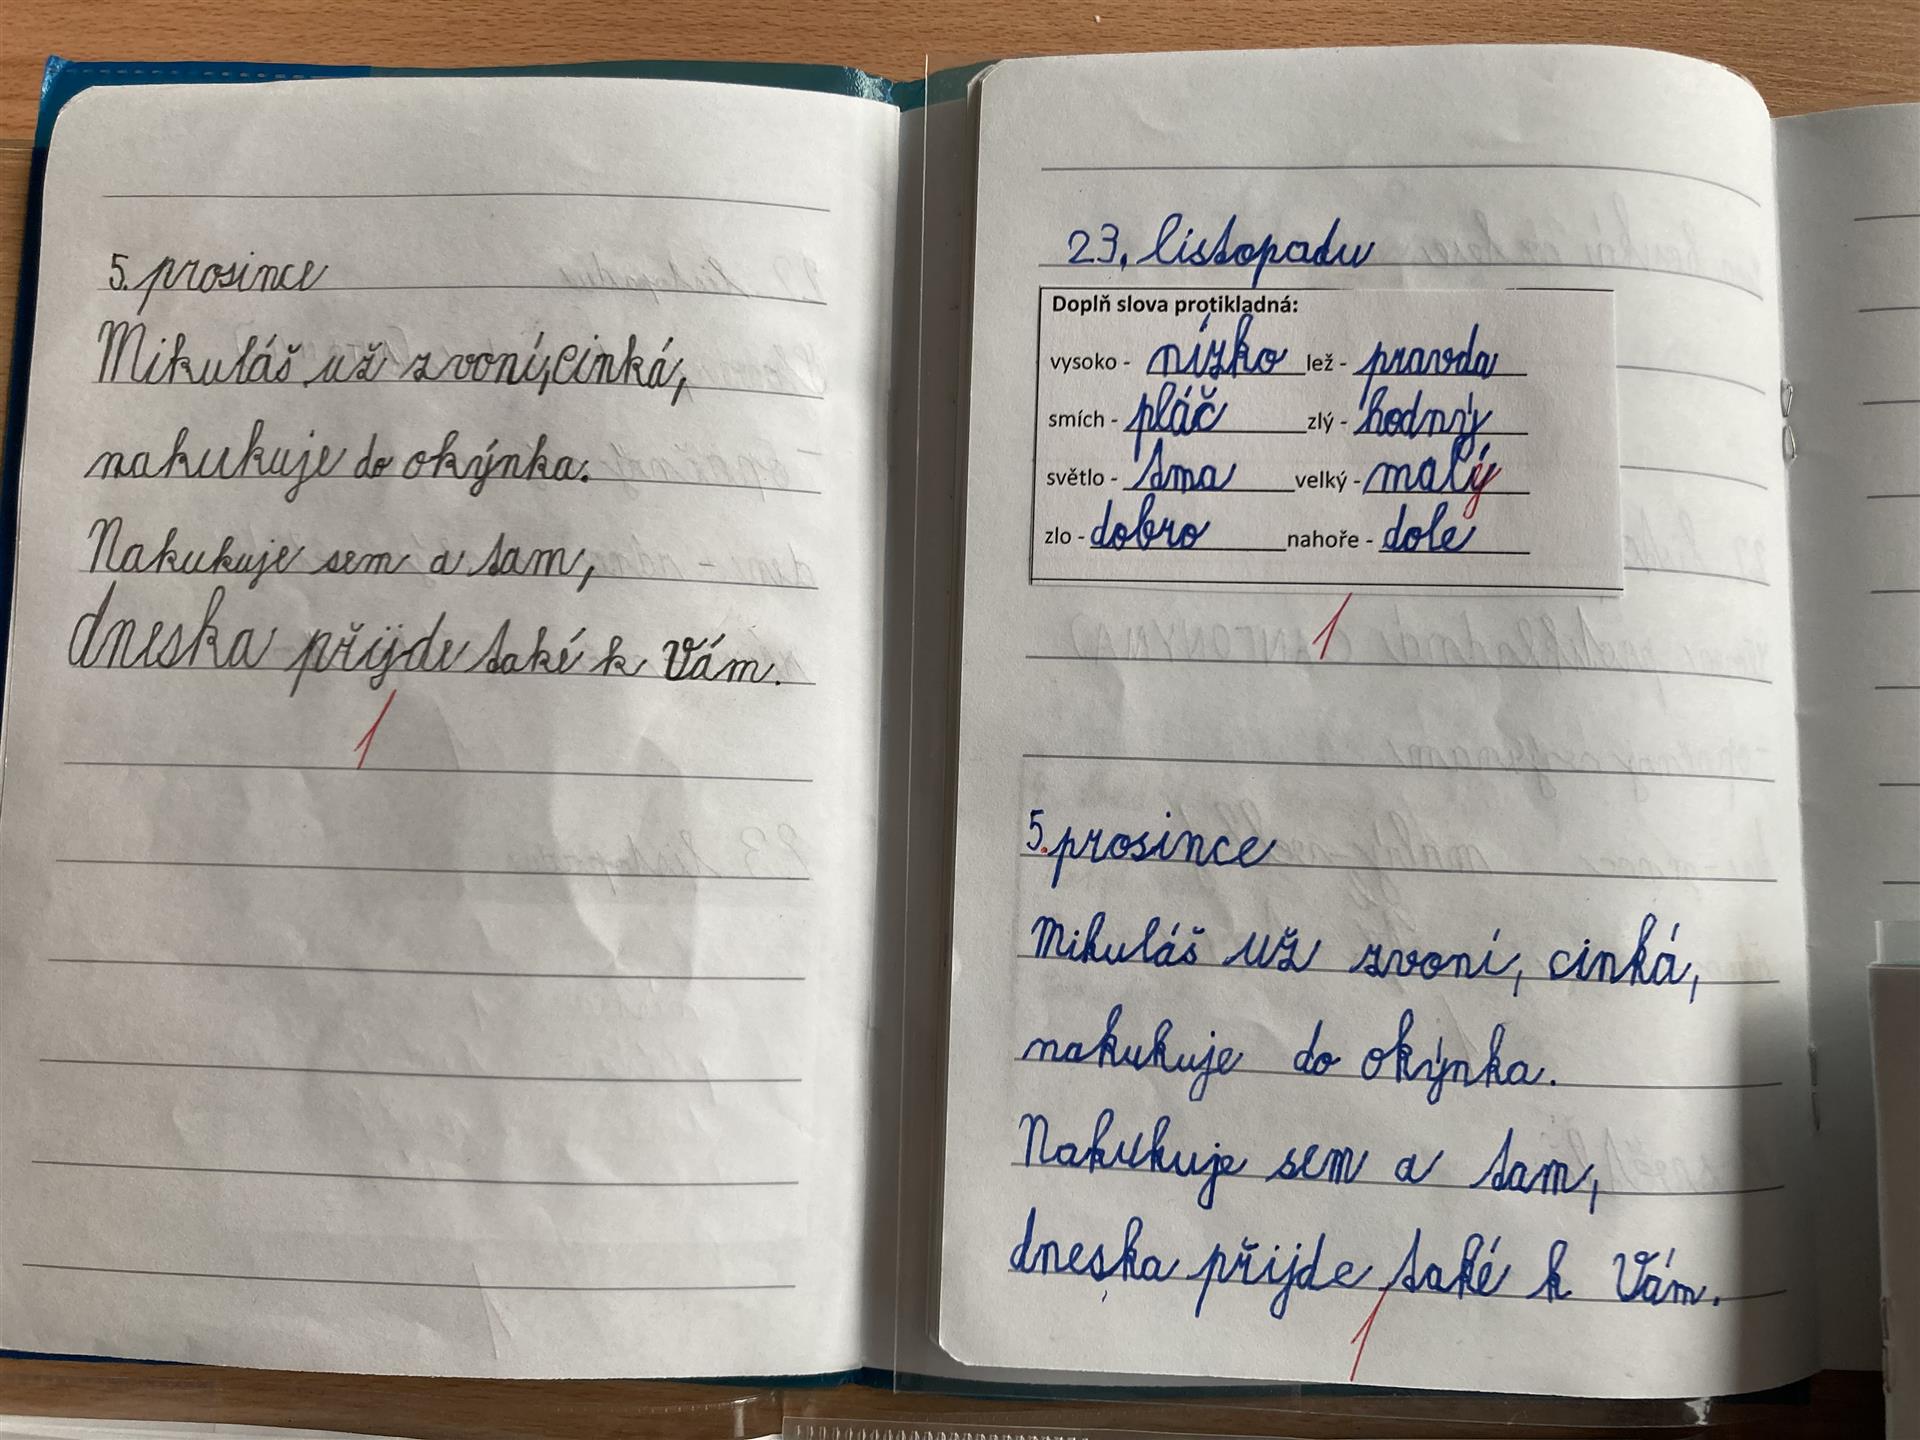 5. prosince
Mikuláš už zvoní, cinká,
nakukuje do okýnka.
Nakukuje sem a tam,
dneska přijde také k Vám.
1
23. listopadu
Doplň slova protikladná:
vysoko - nízko lež - pravda
smích - pláč zlý - hodný
světlo - tma velký - malý
zlo - dobro nahoře - dole
1
5. prosince
Mikuláš už zvoní, cinká,
nakukuje do okýnka.
Nakukuje sem a tam,
dneska přijde také k Vám.
1